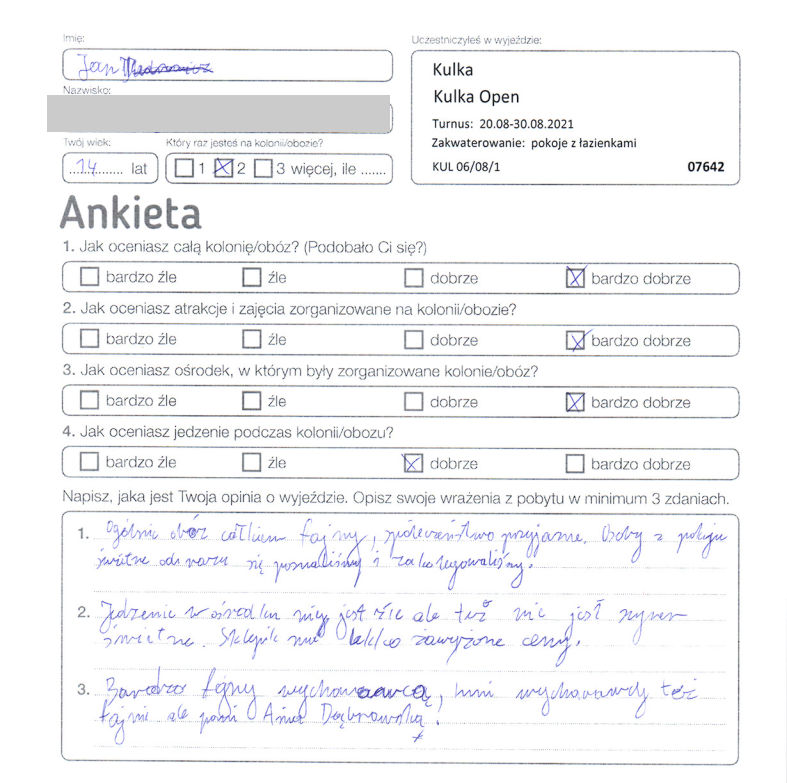 Imię:
Jan
Uczestniczyłeś w wyjeździe:
Kulka
Kulka Open
Turnus: 20.08-30.08.2021
Zakwaterowanie: pokoje z łazienkami
KUL 06/08/1 07642
Nazwisko:
Twój wiek: Który raz jesteś na kolonii/obozie?
14 lat 1 2 3 więcej, ile .......
Ankieta
1. Jak oceniasz całą kolonię/obóz? (Podobało Ci się?)
bardzo źle źle dobrze bardzo dobrze
2. Jak oceniasz atrakcje i zajęcia zorganizowane na kolonii/obozie?
bardzo źle źle dobrze bardzo dobrze
3. Jak oceniasz ośrodek, w którym były zorganizowane kolonie/obóz?
bardzo źle źle dobrze bardzo dobrze
4. Jak oceniasz jedzenie podczas kolonii/obozu?
bardzo źle źle dobrze bardzo dobrze
Napisz, jaka jest Twoja opinia o wyjeździe. Opisz swoje wrażenia z pobytu w minimum 3 zdaniach.
1. Ogólnie obóz całkiem fajny, przyjazne. Osoby z pokoju
świetne od razu się poznaliśmy i zakolegowaliśmy.
2. Jedzenie w ośrodku nie jest źle ale też nie jest
świetne. Sklepik ma lekko zawyżone ceny.
3. Bardzo fajny inni wychowawcy też
fajni ale pani Ania Dąbrowska!